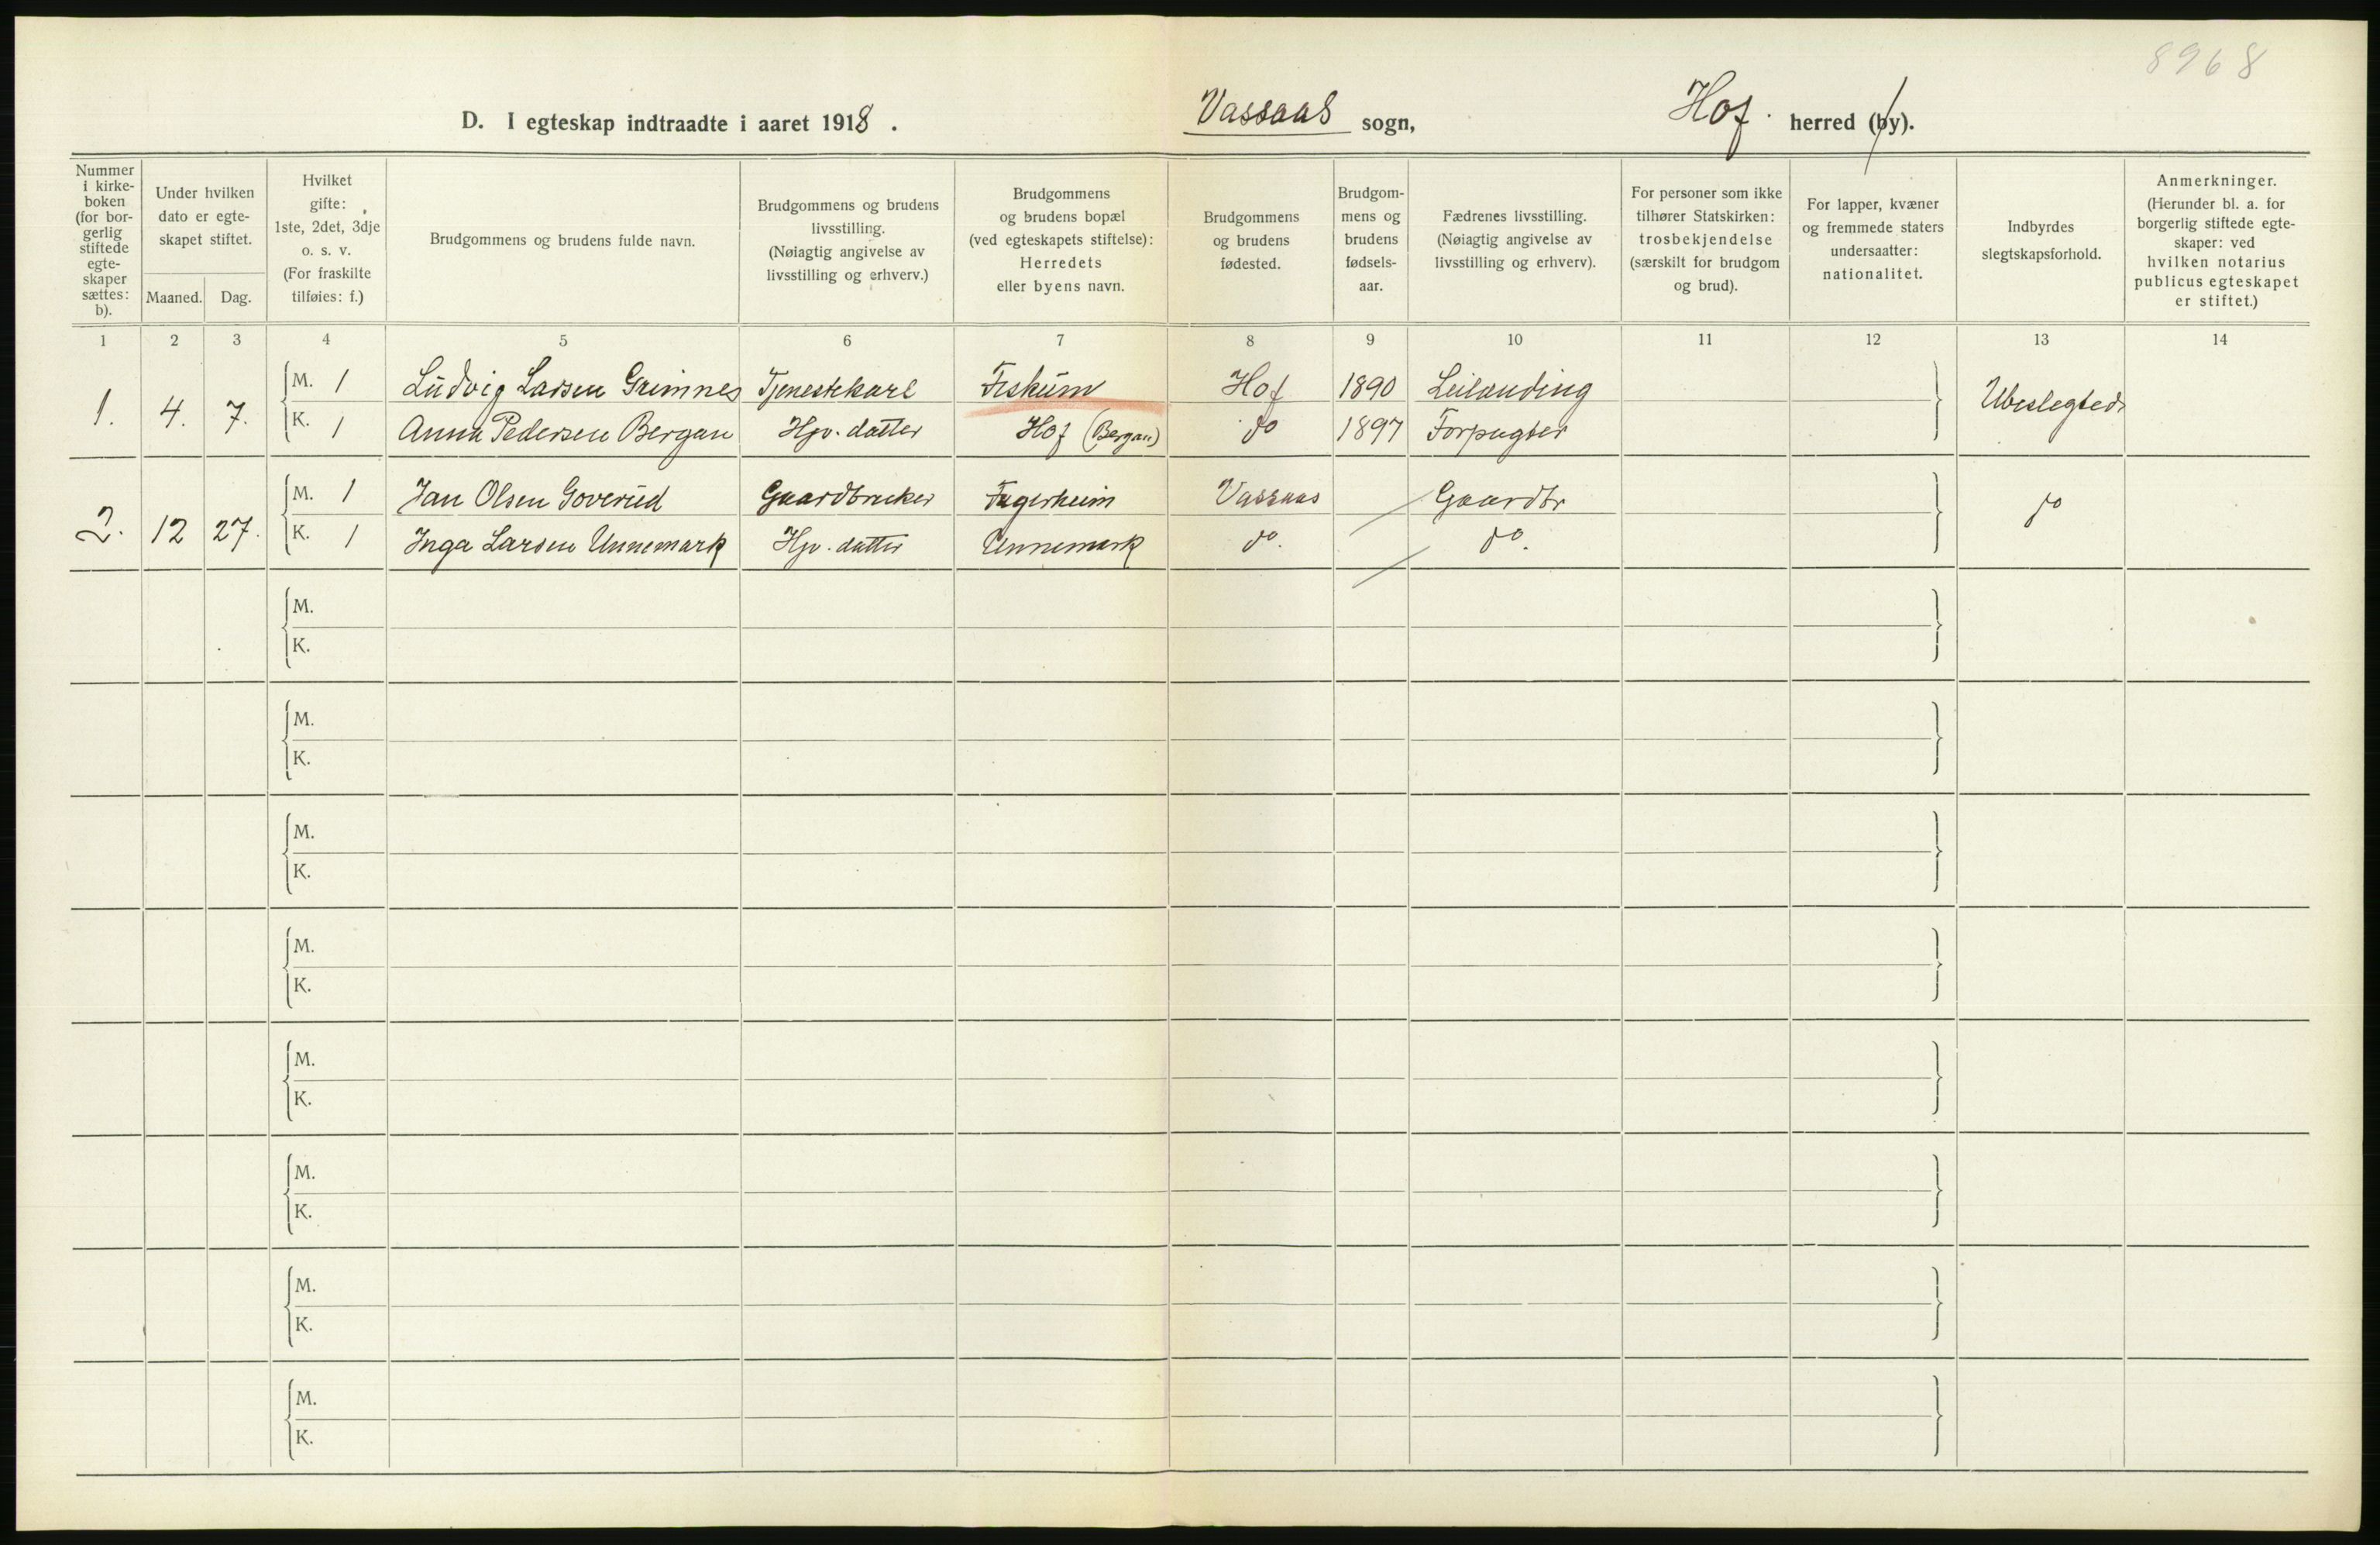 8968
D. I egteskap indtraadte i aaret 1918. Vassaas sogn, Hof. herred (by).
Nummer i kirke-boken (for bor-gerlig stiftede egte-skaper sættes: b).
Under hvilken dato er egte-skapet stiftet.
Maaned. Dag.
Hvilket gifte: 1ste, 2det, 3dje o. s. v. (For fraskilte tilføies: f.)
Brudgommens og brudens fulde navn.
Brudgommens og brudens livsstilling. (Nøiagtig angivelse av livsstilling og erhverv.)
Brudgommens og brudens bopæl (ved egteskapets stiftelse): Herredets eller byens navn.
Brudgommens og brudens fødested.
Brudgom-mens og brudens fødsels-aar.
Fædrenes livsstilling. (Nøiagtig angivelse av livsstilling og erhverv).
For personer som ikke tilhører Statskirken: trosbekjendelse (særskilt for brudgom og brud).
For lapper, kvæner og fremmede staters undersaatter: nationalitet.
Indbyrdes slegtskapsforhold.
Anmerkninger. (Herunder bl. a. for borgerlig stiftede egte-skaper: ved hvilken notarius publicus egteskapet er stiftet.)
1 2 3 4 5 6 7 8 9 10 11 12 13 14
1. 4. 7. M. 1 Ludvig Larsen Grimnes Tjenestekarl Fiskum Hof 1890 Leilænding Ubeslegted
K. 1 Anna Pedersen Bergan Hjv. datter Hof (Bergan) do 1897 Forpagter
2. 12 27. M. 1 Jan Olsen Goverud Gaardbruker Fagerheim Vassaas Gaardbr do
K. 1 Inga Larsen Unnemark Hjv. datter Unnemark do. do.
M.
K.
M.
K.
M.
K.
M.
K.
M.
K.
M.
K.
M.
K.
M.
K.